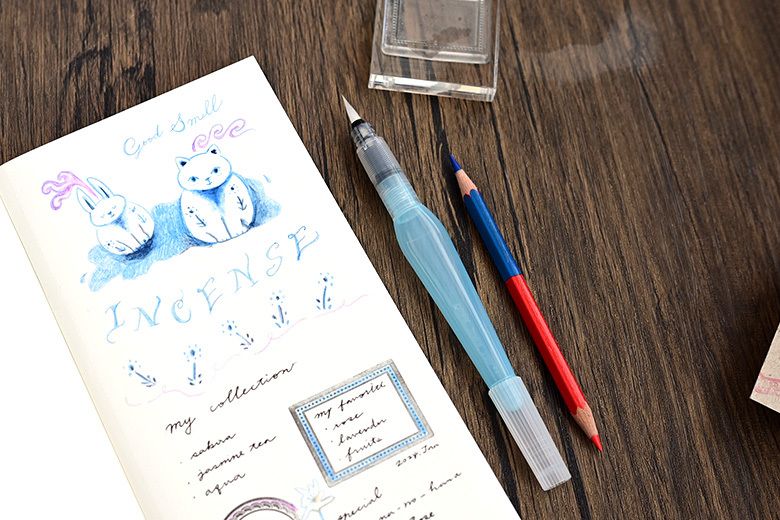 Good Smell
INCENSE
my collection
· sakura
· jasmne tea
· aqua
my favorite
· rose
· lavender
· fruits
special
na-no-hana